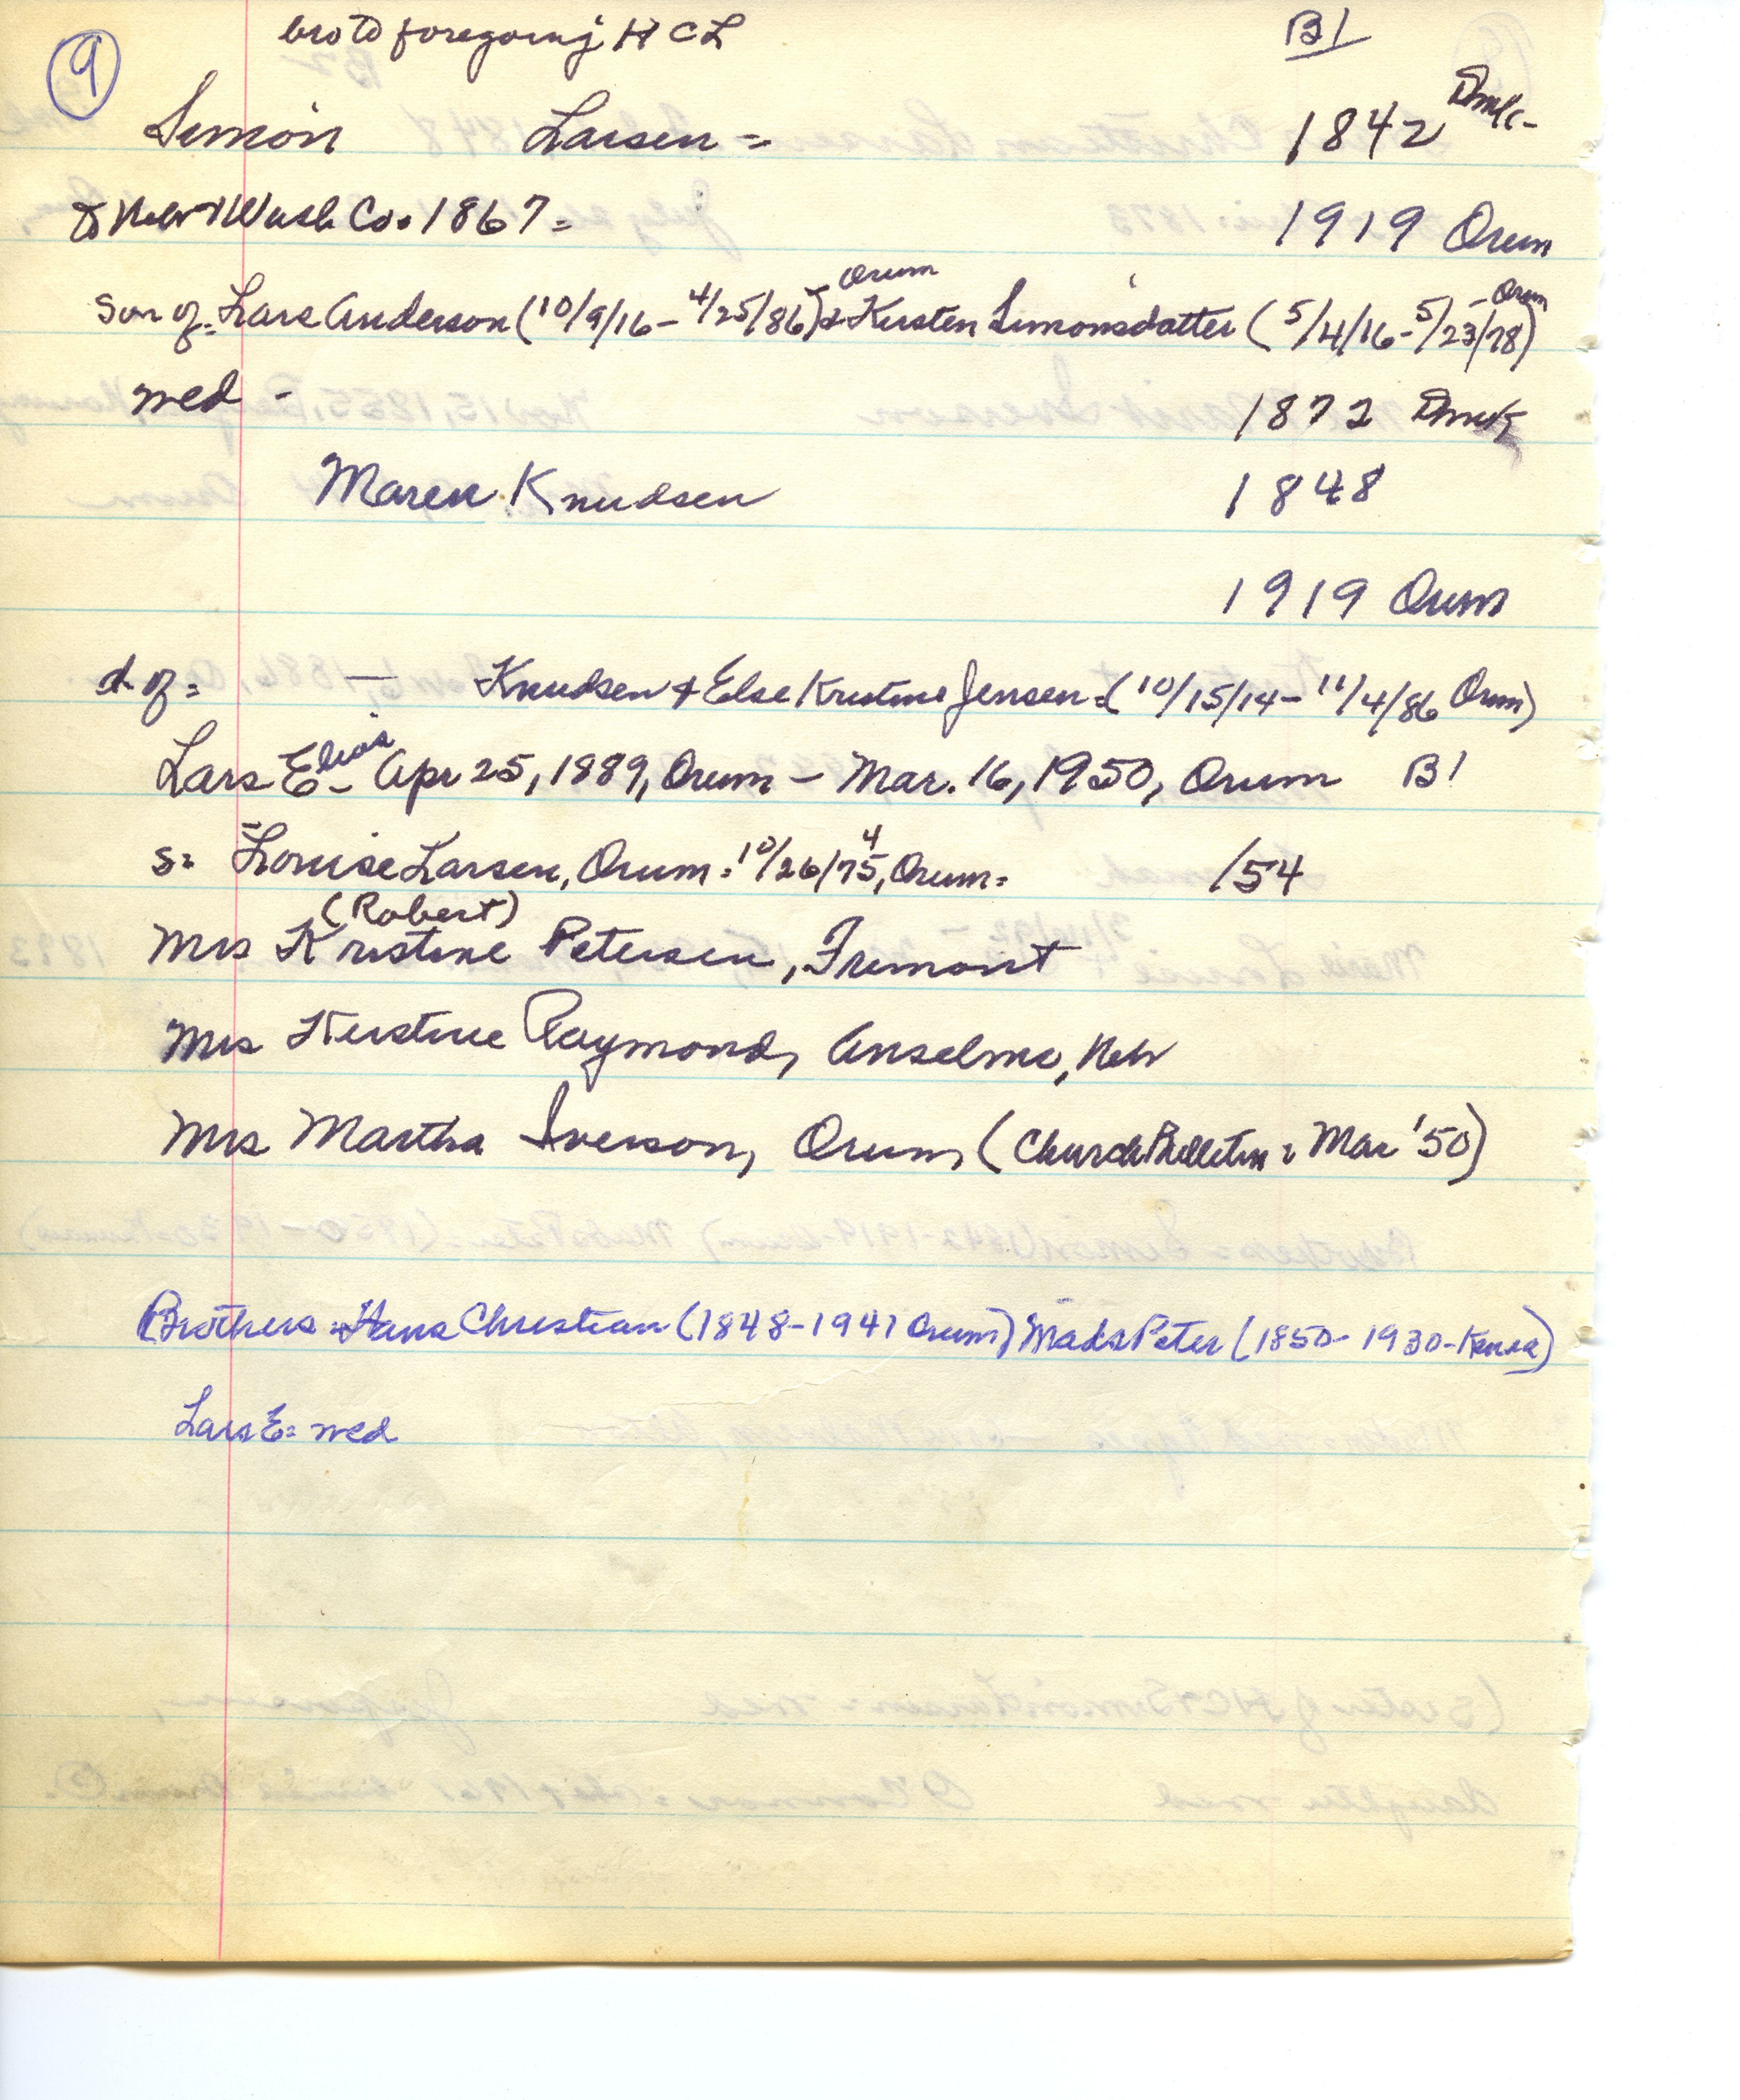 9 bro to foregoing H C L B1
Simon Larsen = 1842 Dmk-
to Nebr & Wash Co. 1867 = 1919 Orum
son of = Lars Anderson (10/9/16 - 4/25/86) - Orum & Kirsten Simonsdatter (5/4/16 - 5/23/78) - Orum
wed - 1872 Dmk
Maren Knudsen 1848
1919 Orum
d of = — Knudsen & Else Kristine Jensen = (10/15/14 - 11/4/86 Orum)
Lars Elias - Apr 25, 1889, Orum - Mar. 16, 1950, Orum B1
s = Louise Larsen, Orum = 10/26/75, 4 Orum = /54
Mrs Kristine (Robert) Petersen, Fremont
Mrs Kirstine Raymond, Anselmo, Nebr
Mrs Martha Iverson, Orum, (Church Bulletin = Mar '50)
Brothers = Hans Christian (1848-1941 Orum) Mads Peter (1850- 1930-)
Lars E = wed